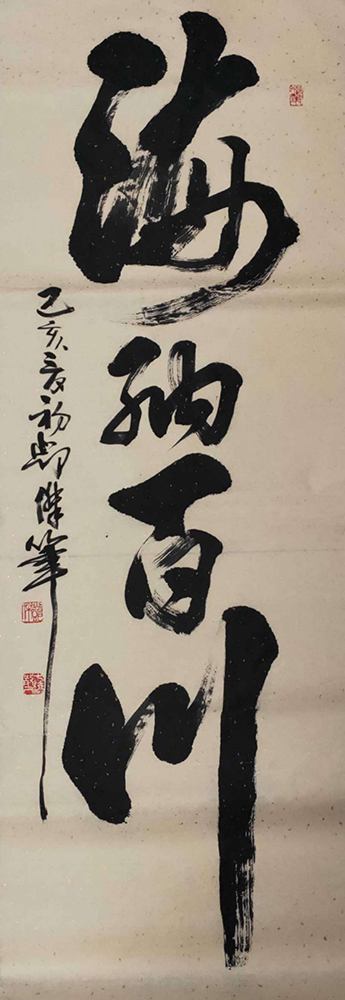 海纳百川
己亥夏初郎杰笔